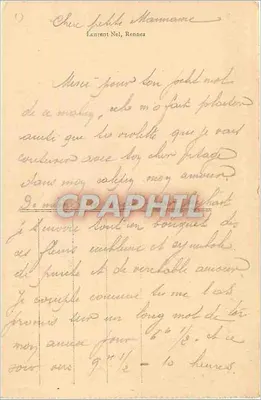 Cher petite Mamame
Laurent Nel, Rennes
Merci pour ton petit mot
de ce matin, cela m'a fait plaisir
ainsi que ta violette que je vais
conserver avec ton cher visage
dans mon mon amour.
CPAPHIL
je t'envoie tout un bouquet de
ces fleurs emblème et symbole
de pureté et de véritable amour.
Je compte comme tu me l'as
promis sur un long mot de toi
mon amour pour 6 h 1/2 et ce
soir vers 9 h 1/2 - 10 heures.